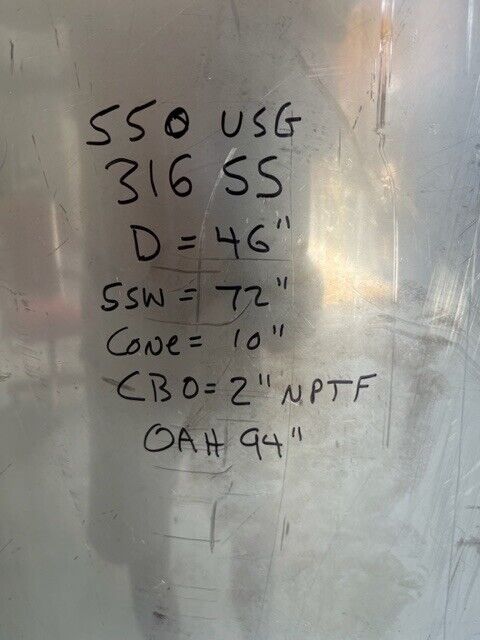 550 USG
316 SS
D = 46"
SSW = 72"
CONE = 10"
CBO = 2" NPTF
OAH 94"